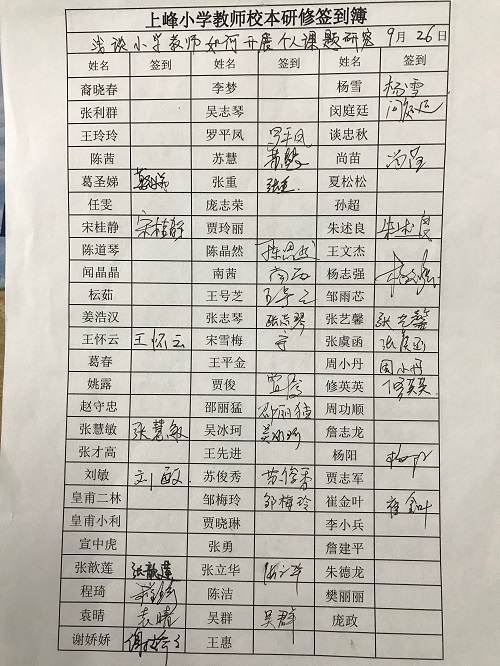 上峰小学教师校本研修签到簿
浅谈小学教师如何开展个人课题研究 9月26日
姓名 签到 姓名 签到 姓名 签到
裔晓春 李梦 杨雪 杨雪
张利群 吴志琴 闵庭廷 闵庭廷
王玲玲 罗平凤 罗平凤 谈忠秋
陈茜 苏慧 苏慧 尚苗 尚苗
葛圣娣 张重 张重 夏松松
任雯 庞志荣 孙超
宋桂静 宋桂静 贾玲丽 朱述良 朱术良
陈道琴 陈晶然 陈晶然 王文杰
闻晶晶 南茜 南茜 杨志强
枟茹 王号芝 王号芝 邹雨芯
姜浩汉 张志琴 张志琴 张艺馨 张艺馨
王怀云 王怀云 宋雪梅 张虞函 张虞函
葛春 王平金 周小丹 周小丹
姚露 贾俊 修英英 修英英
赵守忠 邵丽猛 邵丽猛 周功顺
张慧敏 张慧敏 吴冰珂 吴冰珂 詹志龙
张才高 王先进 杨阳
刘敏 刘敏 苏俊秀 苏俊秀 贾志军
皇甫二林 邹梅玲 邹梅玲 崔金叶 崔金叶
皇甫小利 贾晓琳 李小兵
宣中虎 张勇 詹建平
张歆莲 张歆莲 张立华 朱德龙
程琦 陈洁 樊丽丽
袁晴 袁晴 吴群 吴群 庞政
谢娇娇 王惠